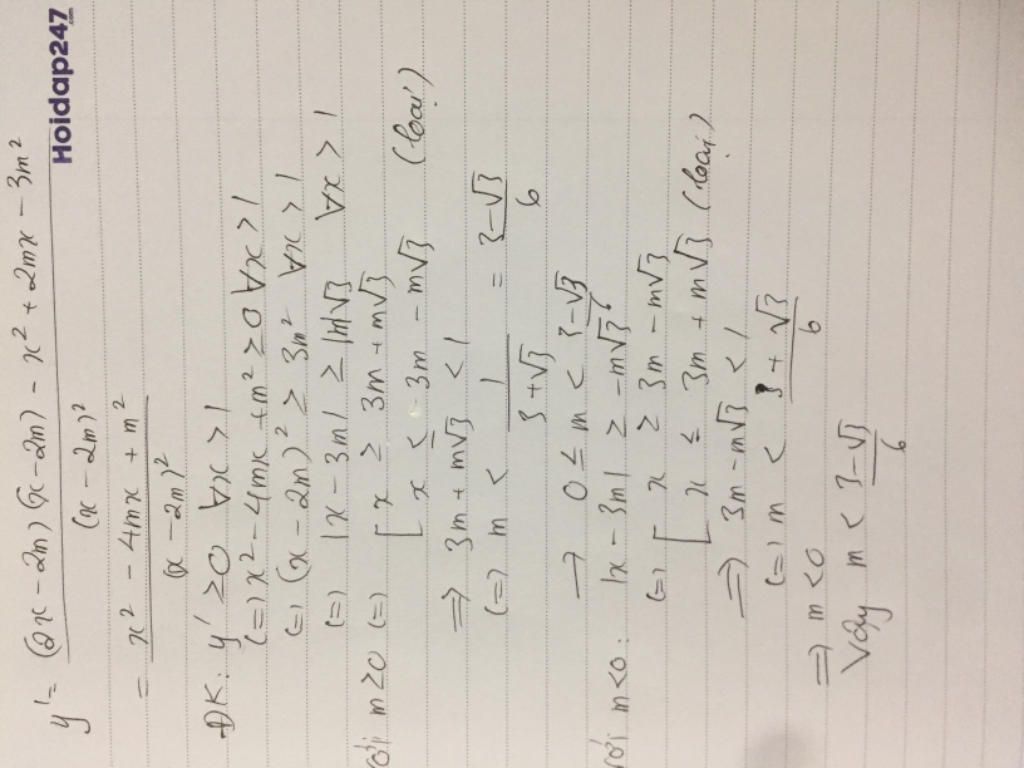 Hoidap247.com
y' = (2x - 2m)(x - 2m) - x² + 2mx - 3m²
(x - 2m)²
= x² - 4mx + m²
(x - 2m)²
ĐK: y' ≥ 0 ∀x > 1
(=) x² - 4mx + m² ≥ 0 ∀x > 1
(=) (x - 2m)² ≥ 3m² ∀x > 1
(=) |x - 3m| ≥ |m|√3 ∀x > 1
với m ≥ 0 (=) [ x ≥ 3m + m√3
[ x ≤ 3m - m√3 (loại)
=> 3m + m√3 < 1
(=) m < 1/(3 + √3) = (3 - √3)/6
→ 0 ≤ m < (3 - √3)/6
với m < 0: |x - 3m| ≥ -m√3
(=) [ x ≥ 3m - m√3
[ x ≤ 3m + m√3 (loại)
=> 3m - m√3 < 1
(=) m < (3 + √3)/6
=> m < 0
Vậy m < (3 - √3)/6